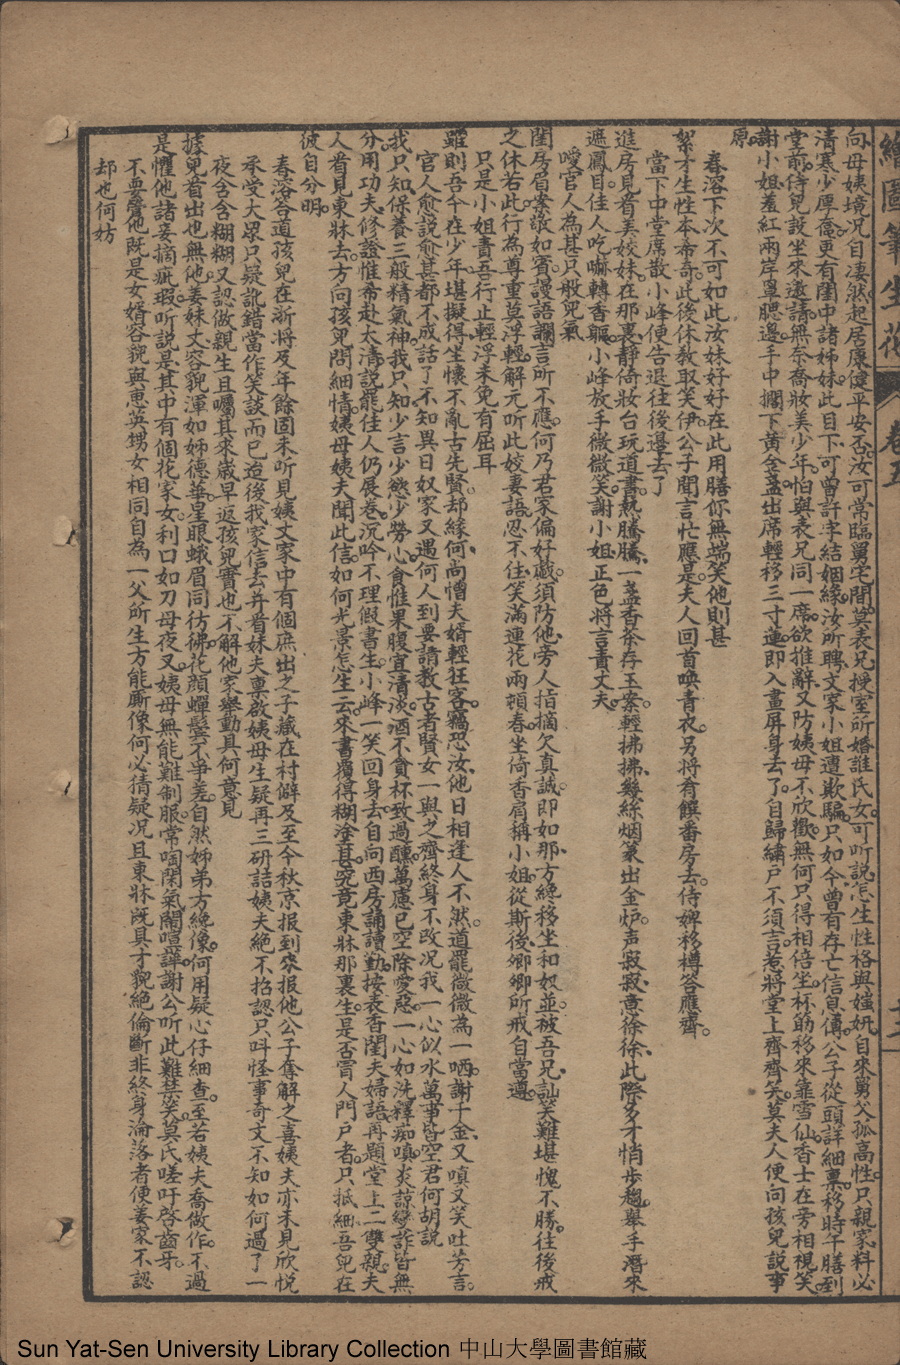 繪圖筆生花 卷五 十二
向母姨境况自凄然起居康健平安否汝可常臨舅宅間莫表兄授室所婚誰氏女可听說怎生性格與媸妍自來舅父孤高性只親家料必
清寒少厚奩更有閨中諸姊妹此日下可曾許字結姻緣汝所聘文家小姐遭欺騙只如今曾有存亡信息傳公子從頭詳細稟移時午膳到
堂前侍兒設坐來邀請無奈喬妝美少年怕與表兄同一席欲推辭又防姨母不欣歡無何只得相倍坐杯筯移來靠雪仙香士在旁相視笑
謝小姐羞紅兩岸罩腮邊手中擱下黃金盞出席輕移三寸蓮即入畫屏身去了自歸繡戶不須言惹將堂上齊齊笑莫夫人便向孩兒說事
原
春溶下次不可如此汝妹好好在此用膳你無端笑他則甚
絮才生性本希奇此後休教取笑伊公子聞言忙應是夫人回首喚青衣另將肴饌番房去侍婢移樽答應齊
當下中堂席散小峰便告退往後邊去了
進房見着美姣妹在那裏靜倚妝台玩道書熱騰騰一盞香茶存玉案輕拂拂幾絲烟篆出金炉声寂寂意徐徐此際多才悄步趨舉手潛來
遮鳳目佳人吃嚇轉香軀小峰放手微微笑謝小姐正色將言責丈夫
噯官人為甚只般兒氣
閨房眉案敬如賓謾語讕言所不應何乃君家偏好戲須防他旁人指摘欠真誠即如那方纔移坐和奴並被吾兄訕笑難堪愧不勝往後戒
之休若此行為尊重莫浮輕解元听此姣妻語忍不住笑滿蓮花兩頰春坐倚香肩稱小姐從斯後卿卿所戒自當遵
只是小姐責吾行止輕浮未免有屈耳
雖則吾今在少年堪擬得坐懷不亂古先賢却緣何尚憎夫婿輕狂客竊恐汝他日相逢人不然道罷微微為一哂謝千金又嗔又笑吐芳言
官人愈說愈甚都不成話了不知異日奴家又遇何人到要請教古者賢女一與之齊終身不改况我一心似水萬事皆空君何胡說
我只知保養三般精氣神我只知少言少慾少勞心食惟果腹宜清淡酒不貪杯致過醺萬慮已空除愛惡一心如洗釋痴嗔炎諒戀詐皆無
分用功夫修證惟希赴太清說罷佳人仍展卷沉吟不理假書生小峰一笑回身去自向西房誦讀勤按表香閨夫婦語再題堂上二雙親夫
人看見東牀去方向孩兒問細情姨母姨夫聞此信如何光景怎生云來書覆得糊塗甚究竟東牀那裏生是否冒人門戶者只抵細吾兒在
彼自分明
春溶答道孩兒在浙將及年餘固未听見姨丈家中有個庶出之子藏在村僻及至今秋京报到來报他公子奪解之喜姨夫亦未見欣悦
承堂大眾只疑訛錯當作笑談而已迨後我家信去并着妹夫稟啟姨母生疑再三研詰姨夫絶不招認只叫怪事奇文不知如何過了一
夜含含糊糊又認做親生且囑其來歲早返孩兒實也不解他家舉動具何意見
據兒看出也無他姜妹丈容貌渾如姊德華星眼蛾眉同彷彿花顏蟬鬓不爭差自然姊弟方纔像何用疑心仔細查至若姨夫喬做作不過
是懼他諸妾摘疵瑕听說是其中有個花家女利口如刀母夜叉姨母無能難制服常啕閑氣鬧喧譁謝公听此難禁笑莫氏嗟吁啓齒牙
不要管他既是女婿容貌與惠英甥女相同自為一父所生方能厮像何必猜疑况且東牀既具才貌絶倫斷非終身淪落者便姜家不認
却也何妨
Sun Yat-Sen University Library Collection 中山大學圖書館藏